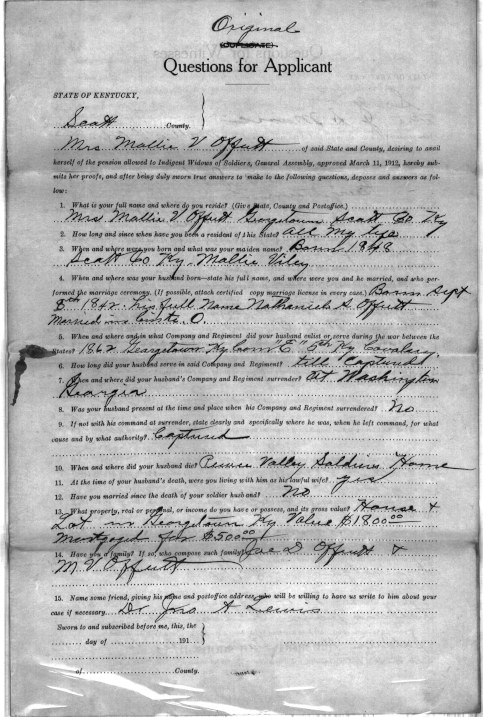 Original
(DUPLICATE)
Questions for Applicant
STATE OF KENTUCKY,
Scott County.
Mrs Mallie V Offutt of said State and County, desiring to avail
herself of the pension allowed to Indigent Widows of Soldiers, General Assembly, approved March 11, 1912, hereby sub-
mits her proofs, and after being duly sworn true answers to make to the following questions, deposes and answers as fol-
low:
1. What is your full name and where do you reside? (Give State, County and Postoffice.)
Mrs Mallie V Offutt Georgetown Scott Co Ky
2. How long and since when have you been a resident of this State? all my life
3. When and where were you born and what was your maiden name? Born 1848
Scott Co Ky. Mallie Viley
4. When and where was your husband born—state his full name, and where were you and he married, and who per-
formed the marriage ceremony. (If possible, attach certified copy marriage license in every case.) Born Sept
8th 1842. his full Name Nathaniel S. Offutt
Married in O.
5. When and where and in what Company and Regiment did your husband enlist or serve during the war between the
States? 1862 Georgetown Ky Com "E" 5th Ky Cavalry
6. How long did your husband serve in said Company and Regiment? till Captured
7. When and where did your husband's Company and Regiment surrender? At Washington
Georgia
8. Was your husband present at the time and place when his Company and Regiment surrendered? No
9. If not with his command at surrender, state clearly and specifically where he was, when he left command, for what
cause and by what authority? Captured
10. When and where did your husband die? Pewee Valley Soldiers Home
11. At the time of your husband's death, were you living with him as his lawful wife? yes
12. Have you married since the death of your soldier husband? No
13. What property, real or personal, or income do you have or possess, and its gross value? House &
Lot in Georgetown Ky Value $1800.00
Mortgaged for $500.00
14. Have you a family? If so, who compose such family? Offutt &
M V Offutt
15. Name some friend, giving his name and postoffice address, who will be willing to have us write to him about your
case if necessary. Dr. Jno A Lewis
Sworn to and subscribed before me, this, the
day of 191
of County.